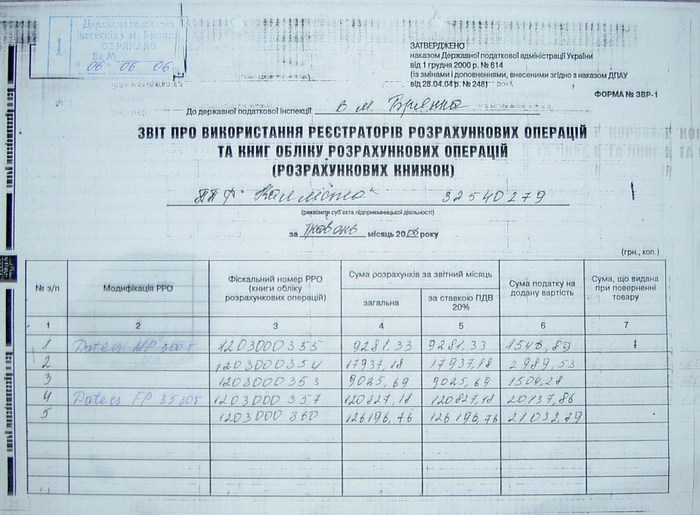 Державна податкова
інспекція у м. Брянка
ОТРИМАНО
Вх. №
1
06 06 06
ЗАТВЕРДЖЕНО
наказом Державної податкової адміністрації України
від 1 грудня 2000 р. № 614
(із змінами і доповненнями, внесеними згідно з наказом ДПАУ
від 28.04.04 р. № 248)
ФОРМА № ЗВР-1
До державної податкової інспекції в м. Брянка
ЗВІТ ПРО ВИКОРИСТАННЯ РЕЄСТРАТОРІВ РОЗРАХУНКОВИХ ОПЕРАЦІЙ
ТА КНИГ ОБЛІКУ РОЗРАХУНКОВИХ ОПЕРАЦІЙ
(РОЗРАХУНКОВИХ КНИЖОК)
ППФ "Каллисто" 32540279
(реквізити суб'єкта підприємницької діяльності)
за травень місяць 2006 року
(грн., коп.)
№ з/п Модифікація РРО Фіскальний номер РРО (книги обліку розрахункових операцій) Сума розрахунків за звітний місяць Сума податку на додану вартість Сума, що видана при поверненні товару
загальна за ставкою ПДВ 20%
1 2 3 4 5 6 7
1 Datecs MP 500T 1203000355 9281.33 9281.33 1546,89
2 1203000354 17937,18 17937,18 2989,53
3 1203000353 9025,69 9025,69 1504,28
4 Datecs FP 3530T 1203000357 120827,18 120827,18 20137,86
5 1203000360 126196,76 126196,76 21032,79